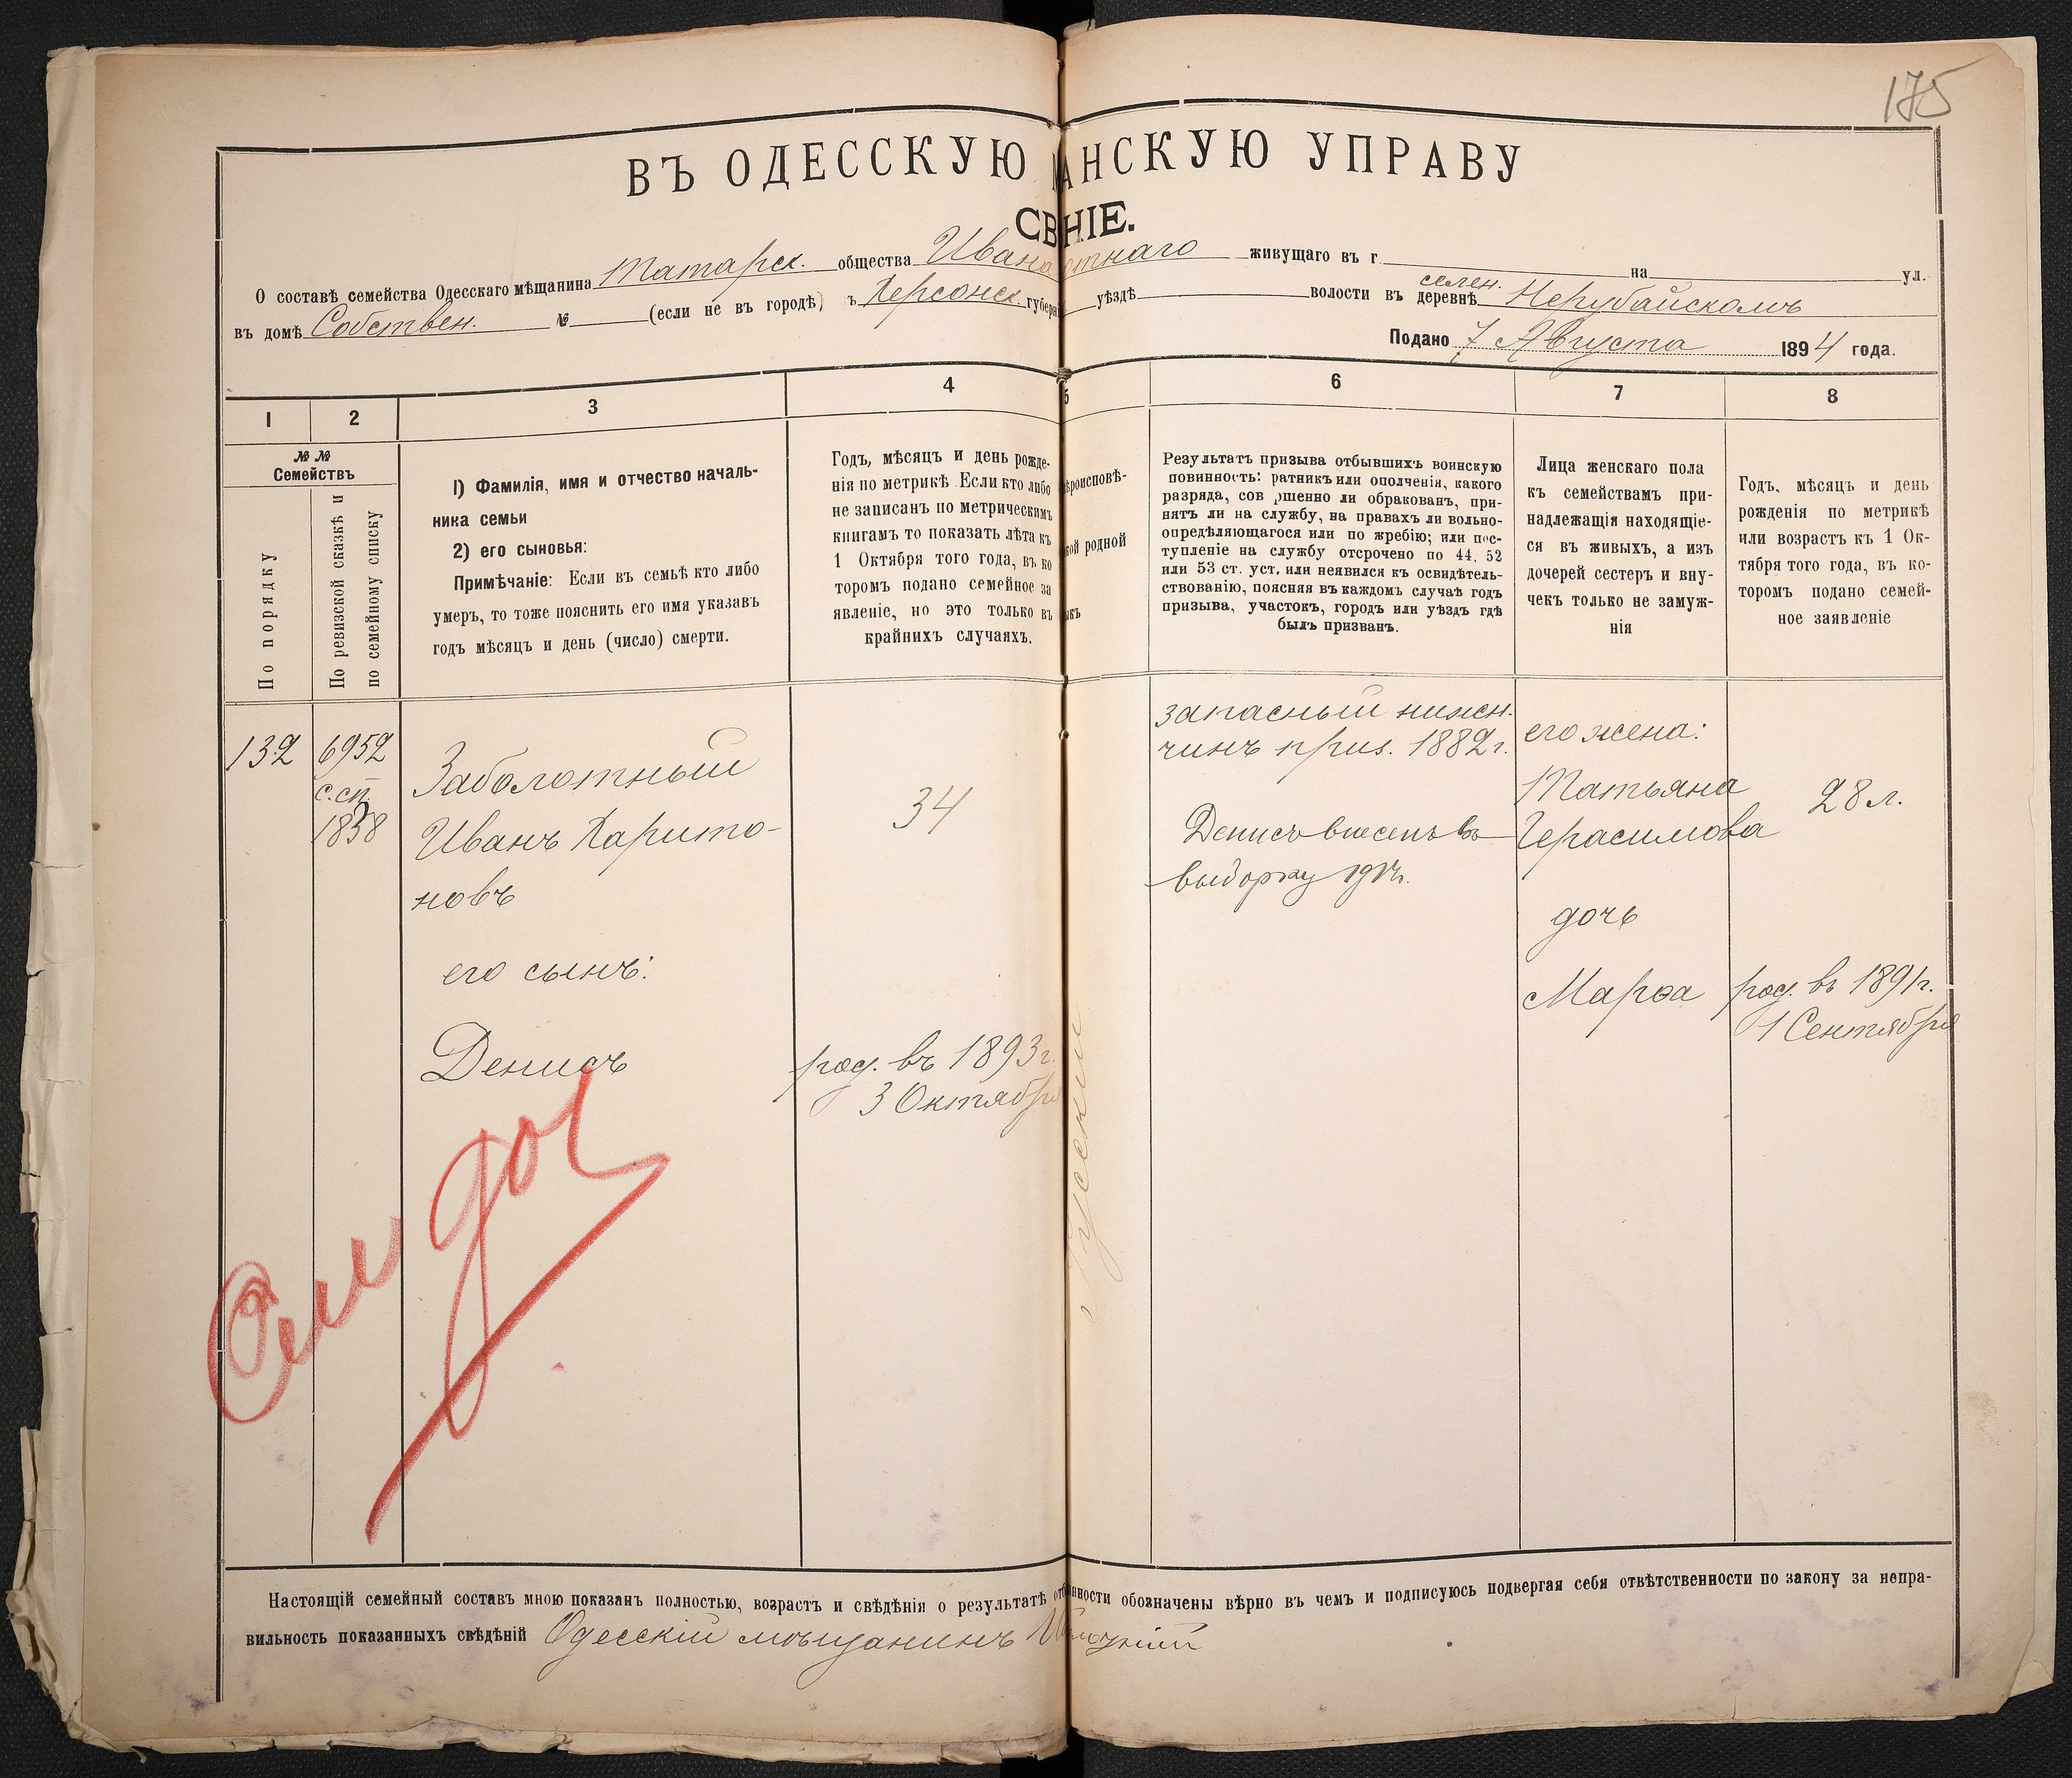 175
ВЪ ОДЕССКУЮ АНСКУЮ УПРАВУ
СВ НІЕ.
О составѣ семейства Одесскаго мѣщанина Татарск. общества Ивана отнаго живущаго въ г. на ул.
въ домѣ Собствен. № (если не въ городѣ) ъ Херсонск. губерн уѣздѣ волости въ деревнѣ селен. Нерубайскомъ
Подано 7 Августа 1894 года.
1 2 3 4 5 6 7 8
№№ Семействъ
По порядку
По ревизской сказкѣ и
по семейному списку
1) Фамилія, имя и отчество началь-
ника семьи
2) его сыновья:
Примѣчаніе: Если въ семьѣ кто либо
умеръ, то тоже пояснить его имя указавъ
годъ мѣсяцъ и день (число) смерти.
Годъ, мѣсяцъ и день рожде-
нія по метрикѣ Если кто либо
не записанъ по метрическимъ
книгамъ то показать лѣта къ
1 Октября того года, въ ко
торомъ подано семейное за
явленіе, но это только въ
крайнихъ случаяхъ.
ѣроисповѣ-
кой родной
ыкъ
Результатъ призыва отбывшихъ воинскую
повинность: ратникъ или ополченія, какого
разряда, сов ршенно ли обракованъ, при-
нятъ ли на службу, на правахъ ли вольно-
опредѣляющагося или по жребію; или пос-
тупленіе на службу отсрочено по 44, 52
или 53 ст. уст. или неявился къ освидѣтель-
ствованію, поясняя въ каждомъ случаѣ годъ
призыва, участокъ, городъ или уѣздъ гдѣ
былъ призванъ.
Лица женскаго пола
къ семействамъ при-
надлежащія находящіе-
ся въ живыхъ, а изъ
дочерей сестеръ и вну-
чекъ только не замуж-
нія
Годъ, мѣсяцъ и день
рожденія по метрикѣ
или возрастъ къ 1 Ок-
тября того года, въ ко-
торомъ подано семей-
ное заявленіе
132
6952
с.сп.
1858
Заболотный
Иванъ Харито-
новъ
34
запасный нижн.
чинъ приз. 1882 г.
его жена:
Татьяна
Герасимова
28 л.
Денисъ внесенъ въ
выборку 1914г.
его сынъ:
Денисъ
род. въ 1893 г.
3 Октября
Русскій
дочь
Марѳа
род. въ 1891 г.
1 Сентября
Настоящій семейный составъ мною показанъ полностью, возрастъ и свѣдѣнія о результатѣ от нности обозначены вѣрно въ чемъ и подписуюсь подвергая себя отвѣтственности по закону за непра-
вильность показанныхъ свѣдѣній Одесскій мѣщанинъ